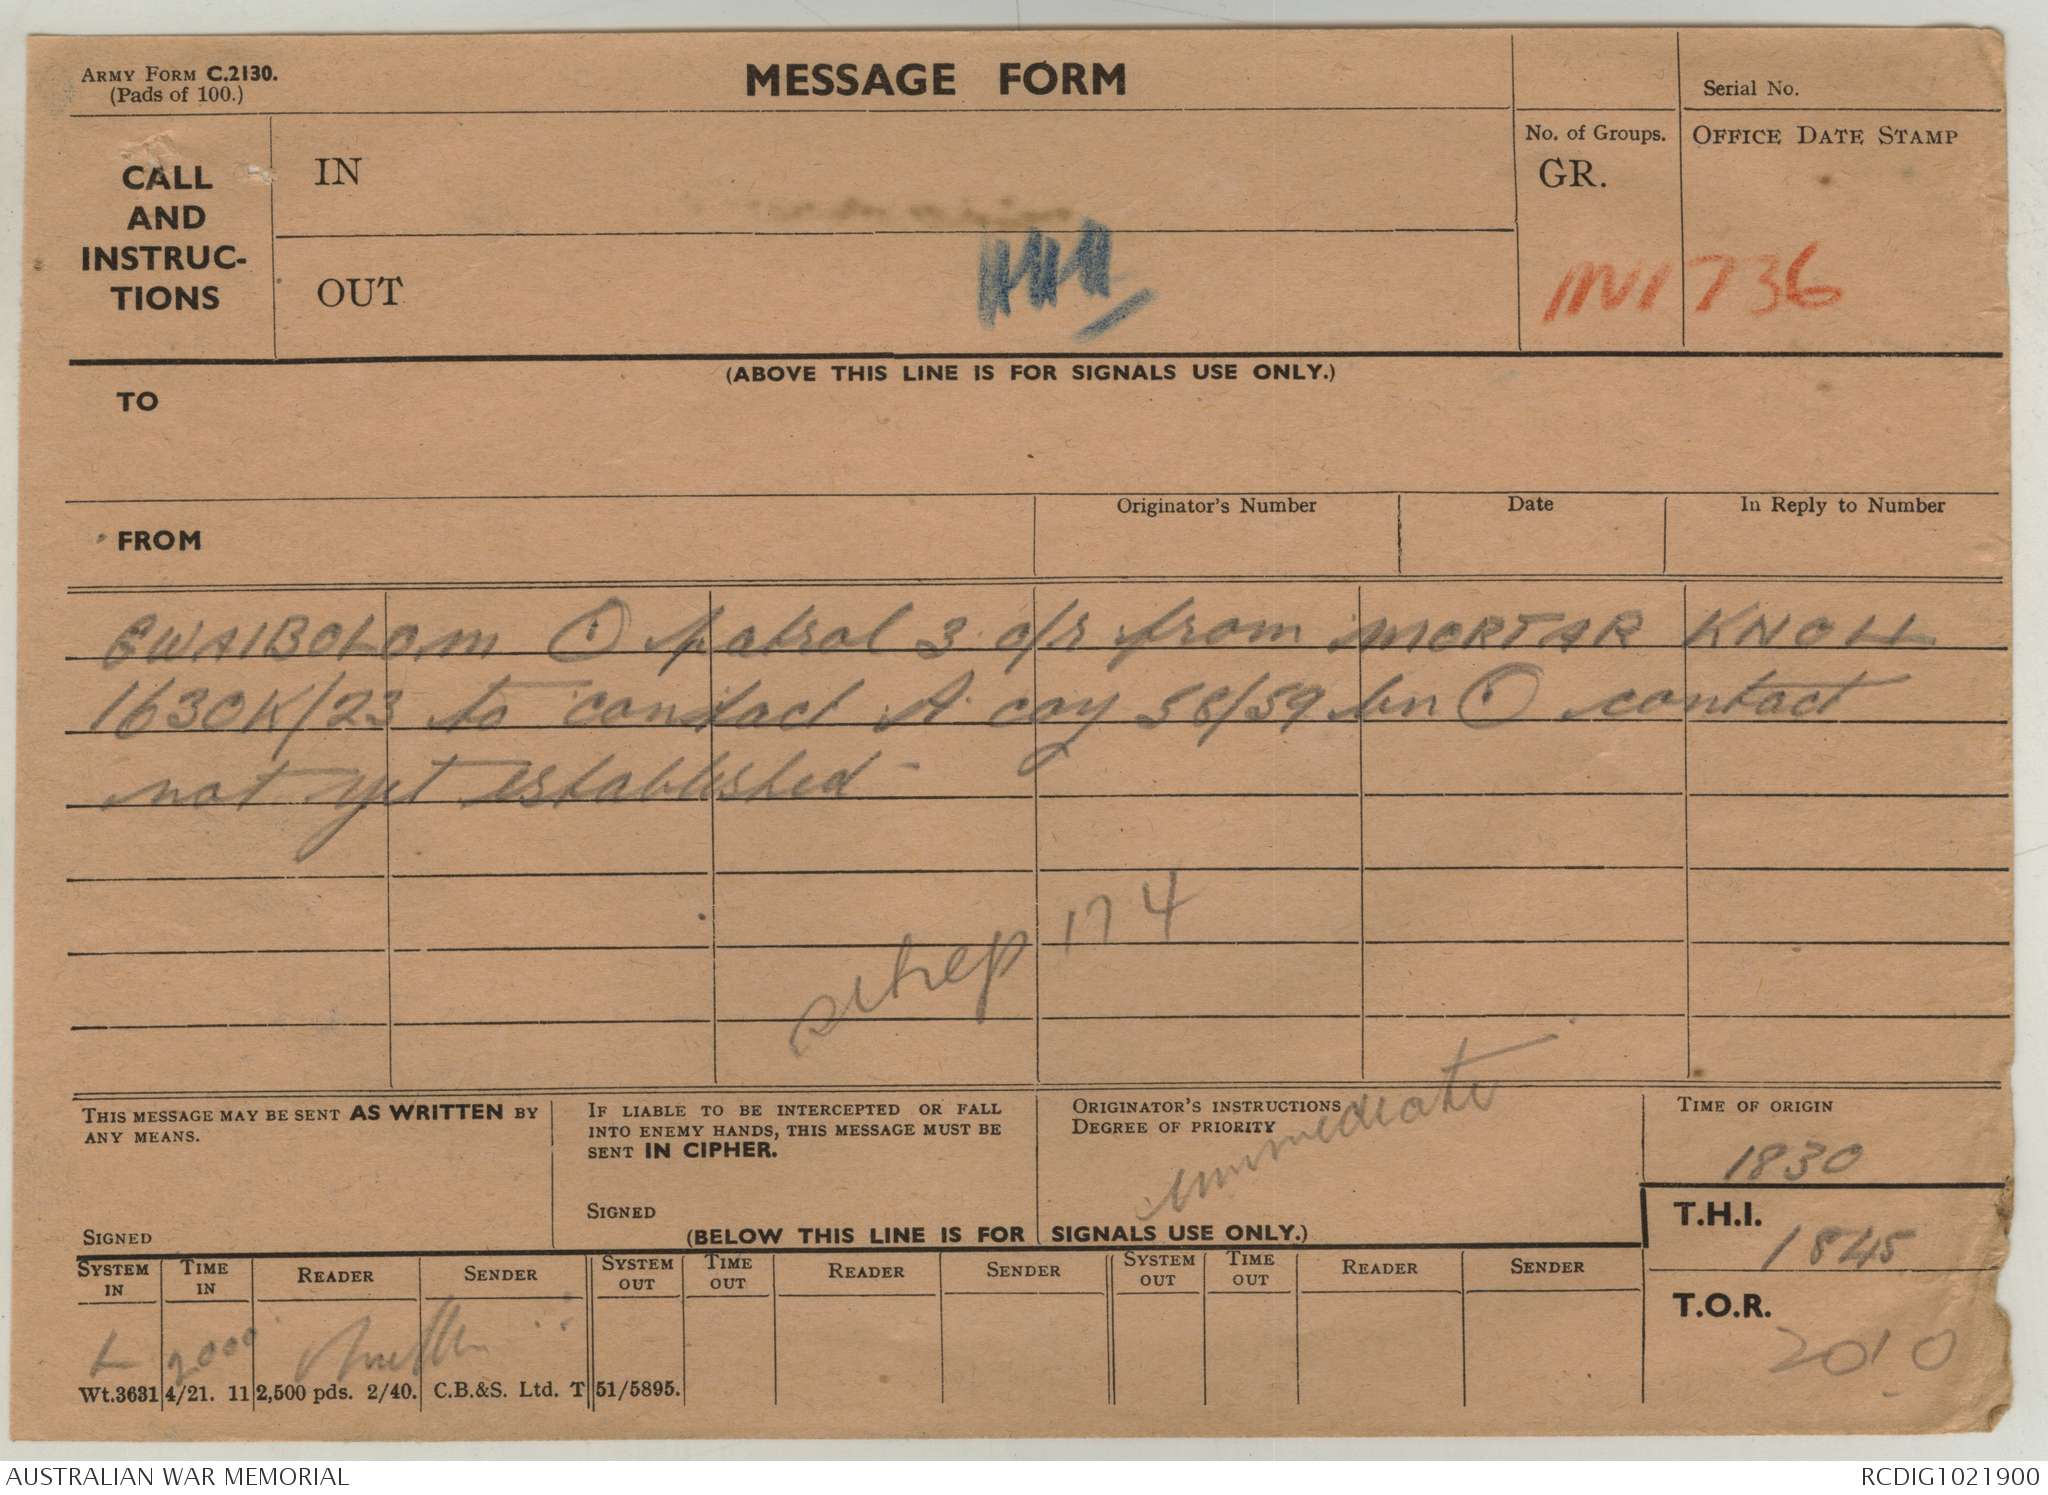 ARMY FORM C.2130.
(Pads of 100.)
MESSAGE FORM
Serial No.
CALL
AND
INSTRUC-
TIONS
IN
OUT
No. of Groups.
GR.
OFFICE DATE STAMP
IN1736
(ABOVE THIS LINE IS FOR SIGNALS USE ONLY.)
TO
FROM
Originator's Number
Date
In Reply to Number
GWAIBOLOM ⊙ patrol 3 o/r from MORTAR KNOLL
1630K/23 to contact A coy 58/59 bn ⊙ contact
not yet established -
sitrep 174
THIS MESSAGE MAY BE SENT AS WRITTEN BY
ANY MEANS.
SIGNED
IF LIABLE TO BE INTERCEPTED OR FALL
INTO ENEMY HANDS, THIS MESSAGE MUST BE
SENT IN CIPHER.
SIGNED
ORIGINATOR'S INSTRUCTIONS
DEGREE OF PRIORITY
immediate
TIME OF ORIGIN
1830
T.H.I.
1845
T.O.R.
2010
(BELOW THIS LINE IS FOR SIGNALS USE ONLY.)
SYSTEM IN
TIME IN
READER
SENDER
SYSTEM OUT
TIME OUT
READER
SENDER
SYSTEM OUT
TIME OUT
READER
SENDER
2000
Wt.3631 4/21. 11 2,500 pds. 2/40. C.B.&S. Ltd. T 51/5895.
AUSTRALIAN WAR MEMORIAL
RCDIG1021900